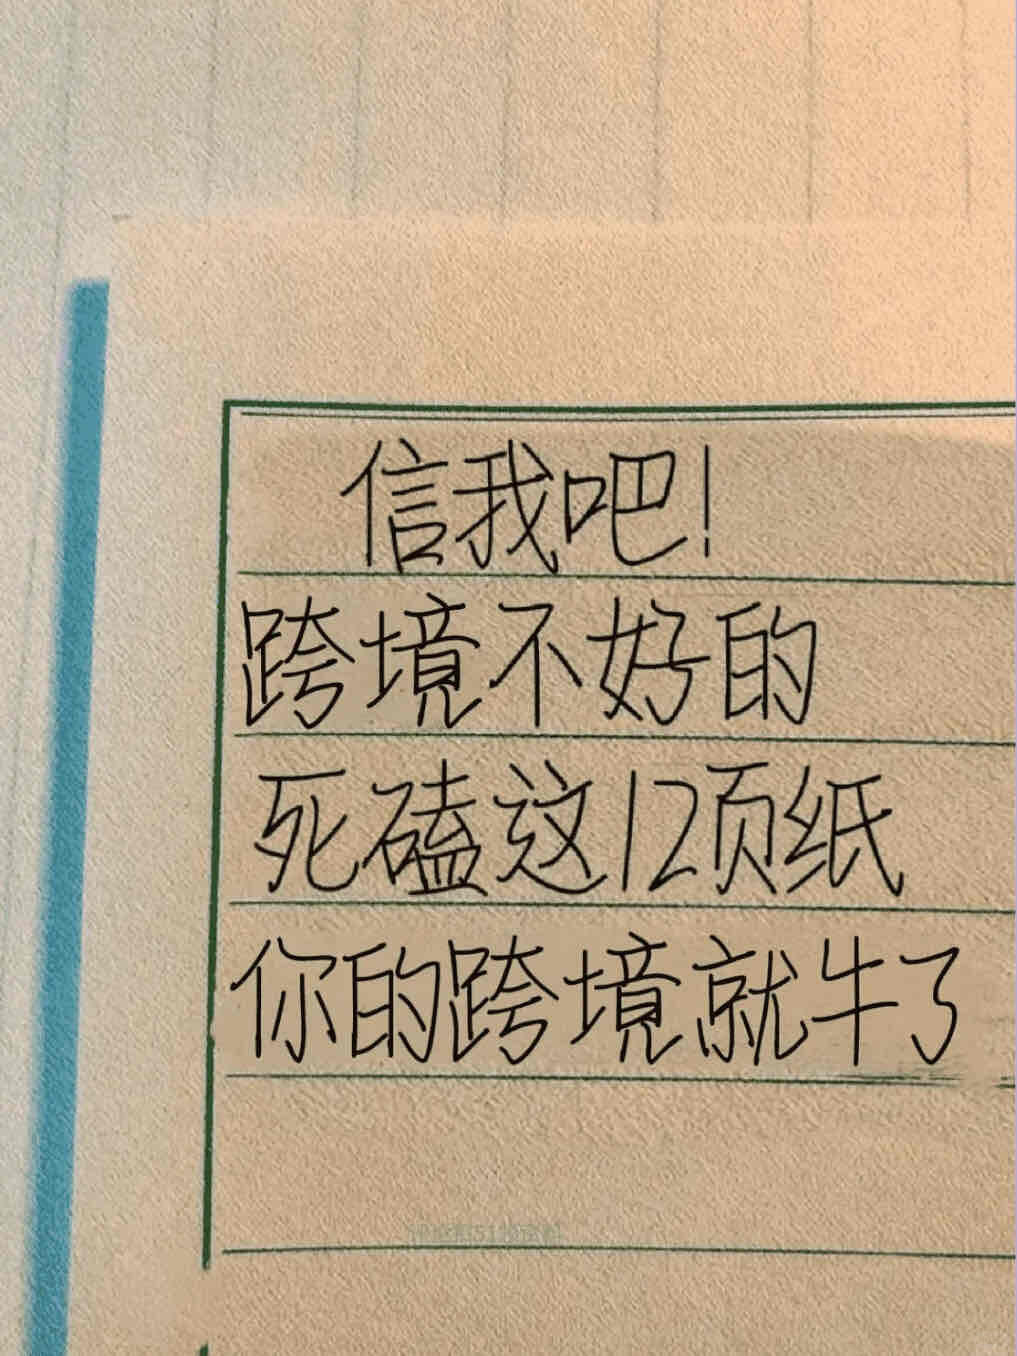 信我吧！
跨境不好的
死磕这12页纸
你的跨境就牛了